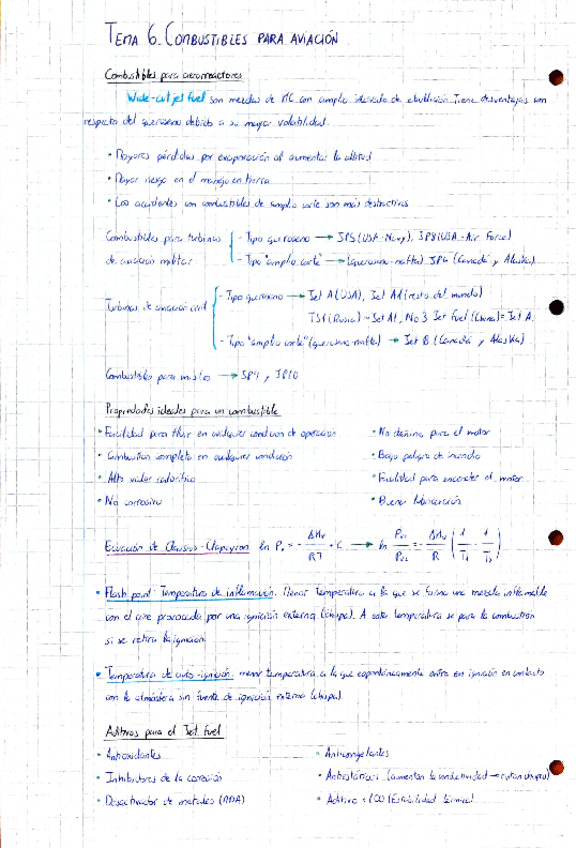 TEMA 6. COMBUSTIBLES PARA AVIACIÓN
Combustibles para aerorreactores
Wide-cut jet fuel son mezclas de HC con amplio intervalo de ebullición. Tiene desventajas con
respecto del queroseno debido a su mayor volatilidad.
• Mayores pérdidas por evaporación al aumentar la altitud
• Mayor riesgo en el manejo en tierra
• Los accidentes con combustibles de amplio corte son más destructivos
Combustibles para turbinas
de aviación militar
- Tipo queroseno → JP5 (USA-Navy), JP8 (USA-Air Force)
- Tipo "amplio corte" → (queroseno-nafta) JP4 (Canadá y Alaska)
Turbinas de aviación civil
- Tipo queroseno → Jet A (USA), Jet A1 (resto del mundo)
TS1 (Rusia) ~ Jet A1, No 3 Jet fuel (China) = Jet A.
- Tipo "amplio corte" (queroseno-nafta) → Jet B (Canadá y Alaska)
Combustibles para misiles → JP9 y JP10
Propiedades ideales para un combustible
• Facilidad para fluir en cualquier condición de operación
• No dañino para el motor
• Combustión completa en cualquier condición
• Bajo peligro de incendio
• Alto valor calorífico
• Facilidad para encender el motor
• No corrosivo
• Buena lubricación
Ecuación de Clausius-Clapeyron ln Pv = - ΔHv / RT + C → ln Pv1 / Pv2 = - ΔHv / R ( 1 / T1 - 1 / T2 )
• Flash point: Temperatura de inflamación. Menor Temperatura a la que se forma una mezcla inflamable
con el aire provocada por una ignición externa (chispa). A esta temperatura se para la combustión
si se retira la ignición.
• Temperatura de auto-ignición: menor temperatura a la que espontáneamente entra en ignición en contacto
con la atmósfera sin fuente de ignición externa (chispa).
Aditivos para el Jet fuel
• Antioxidantes
• Anticongelantes
• Inhibidores de la corrosión
• Antiestáticos (aumentan la conductividad → evitan chispas)
• Desactivador de metales (MDA)
• Aditivo +100 (Estabilidad térmica)